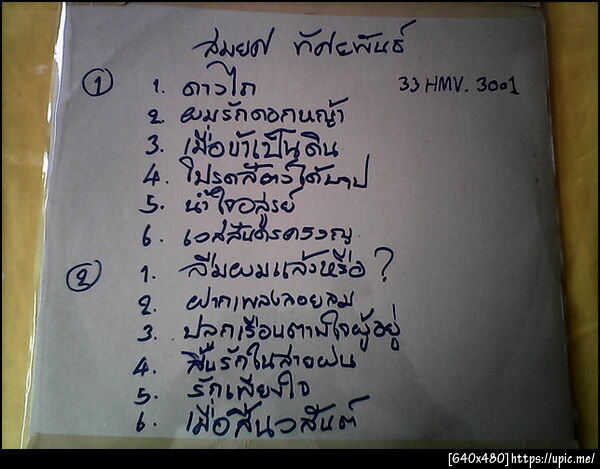 สมยศ ทัศนพันธ์
① 1. ดาวไถ 33 HMV. 3001
2. ผมรักดอกหญ้า
3. เมื่อข้าเป็นดิน
4. โปรดสัตว์ได้บาป
5. น้ำใจอสูรย์
6.
② 1. ลืมผมแล้วหรือ ?
2. ฝากเพลงลอยลม
3. ปลูกเรือนตามใจผู้อยู่
4. สิ้นรักในสายฝน
5. รักเพียงใจ
6. เมื่อสิ้นวสันต์
[640x480]https://upic.me/